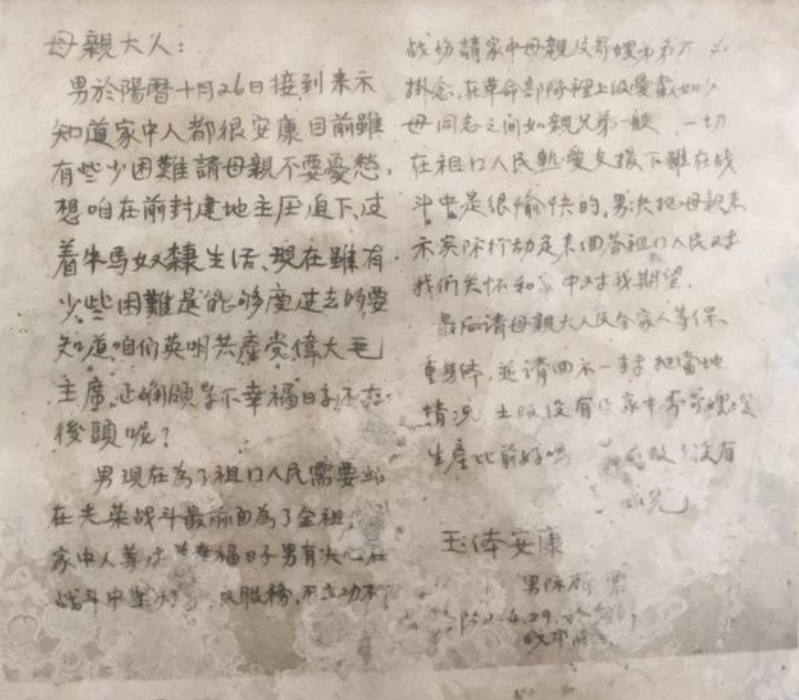 母親大人：
男於陽曆十月26日接到来示
知道家中人都很安康目前雖
有些少困難請母親不要憂愁，
想咱在前封建地主压迫下，过
着牛馬奴隸生活、現在雖有
少些困難是能够度过去的要
知道咱们英明共產党偉大毛
主席，正确領导下幸福日子不在
後頭呢？
男現在為了祖国人民需要站
在光荣战斗最前面為了全祖
家中人等过幸福日子男有决心在
战斗中 服務，不立功不
战场請家中母親及哥嫂弟弟不必
掛念，在革命部隊裡上级爱戴如父
母同志之间如親兄弟一般，一切
在祖国人民熱爱支援下雖在战
斗中是很愉快的，男决把母親来
示实际行动定来回答祖国人民对
我们关怀和家中对我期望。
最后请母親大人及全家人等保
重身体，並请回示一封把當地
情况 土改没有 家中哥哥嫂嫂
生產比前好吗 改了没有
玉体安康
男
4.29.